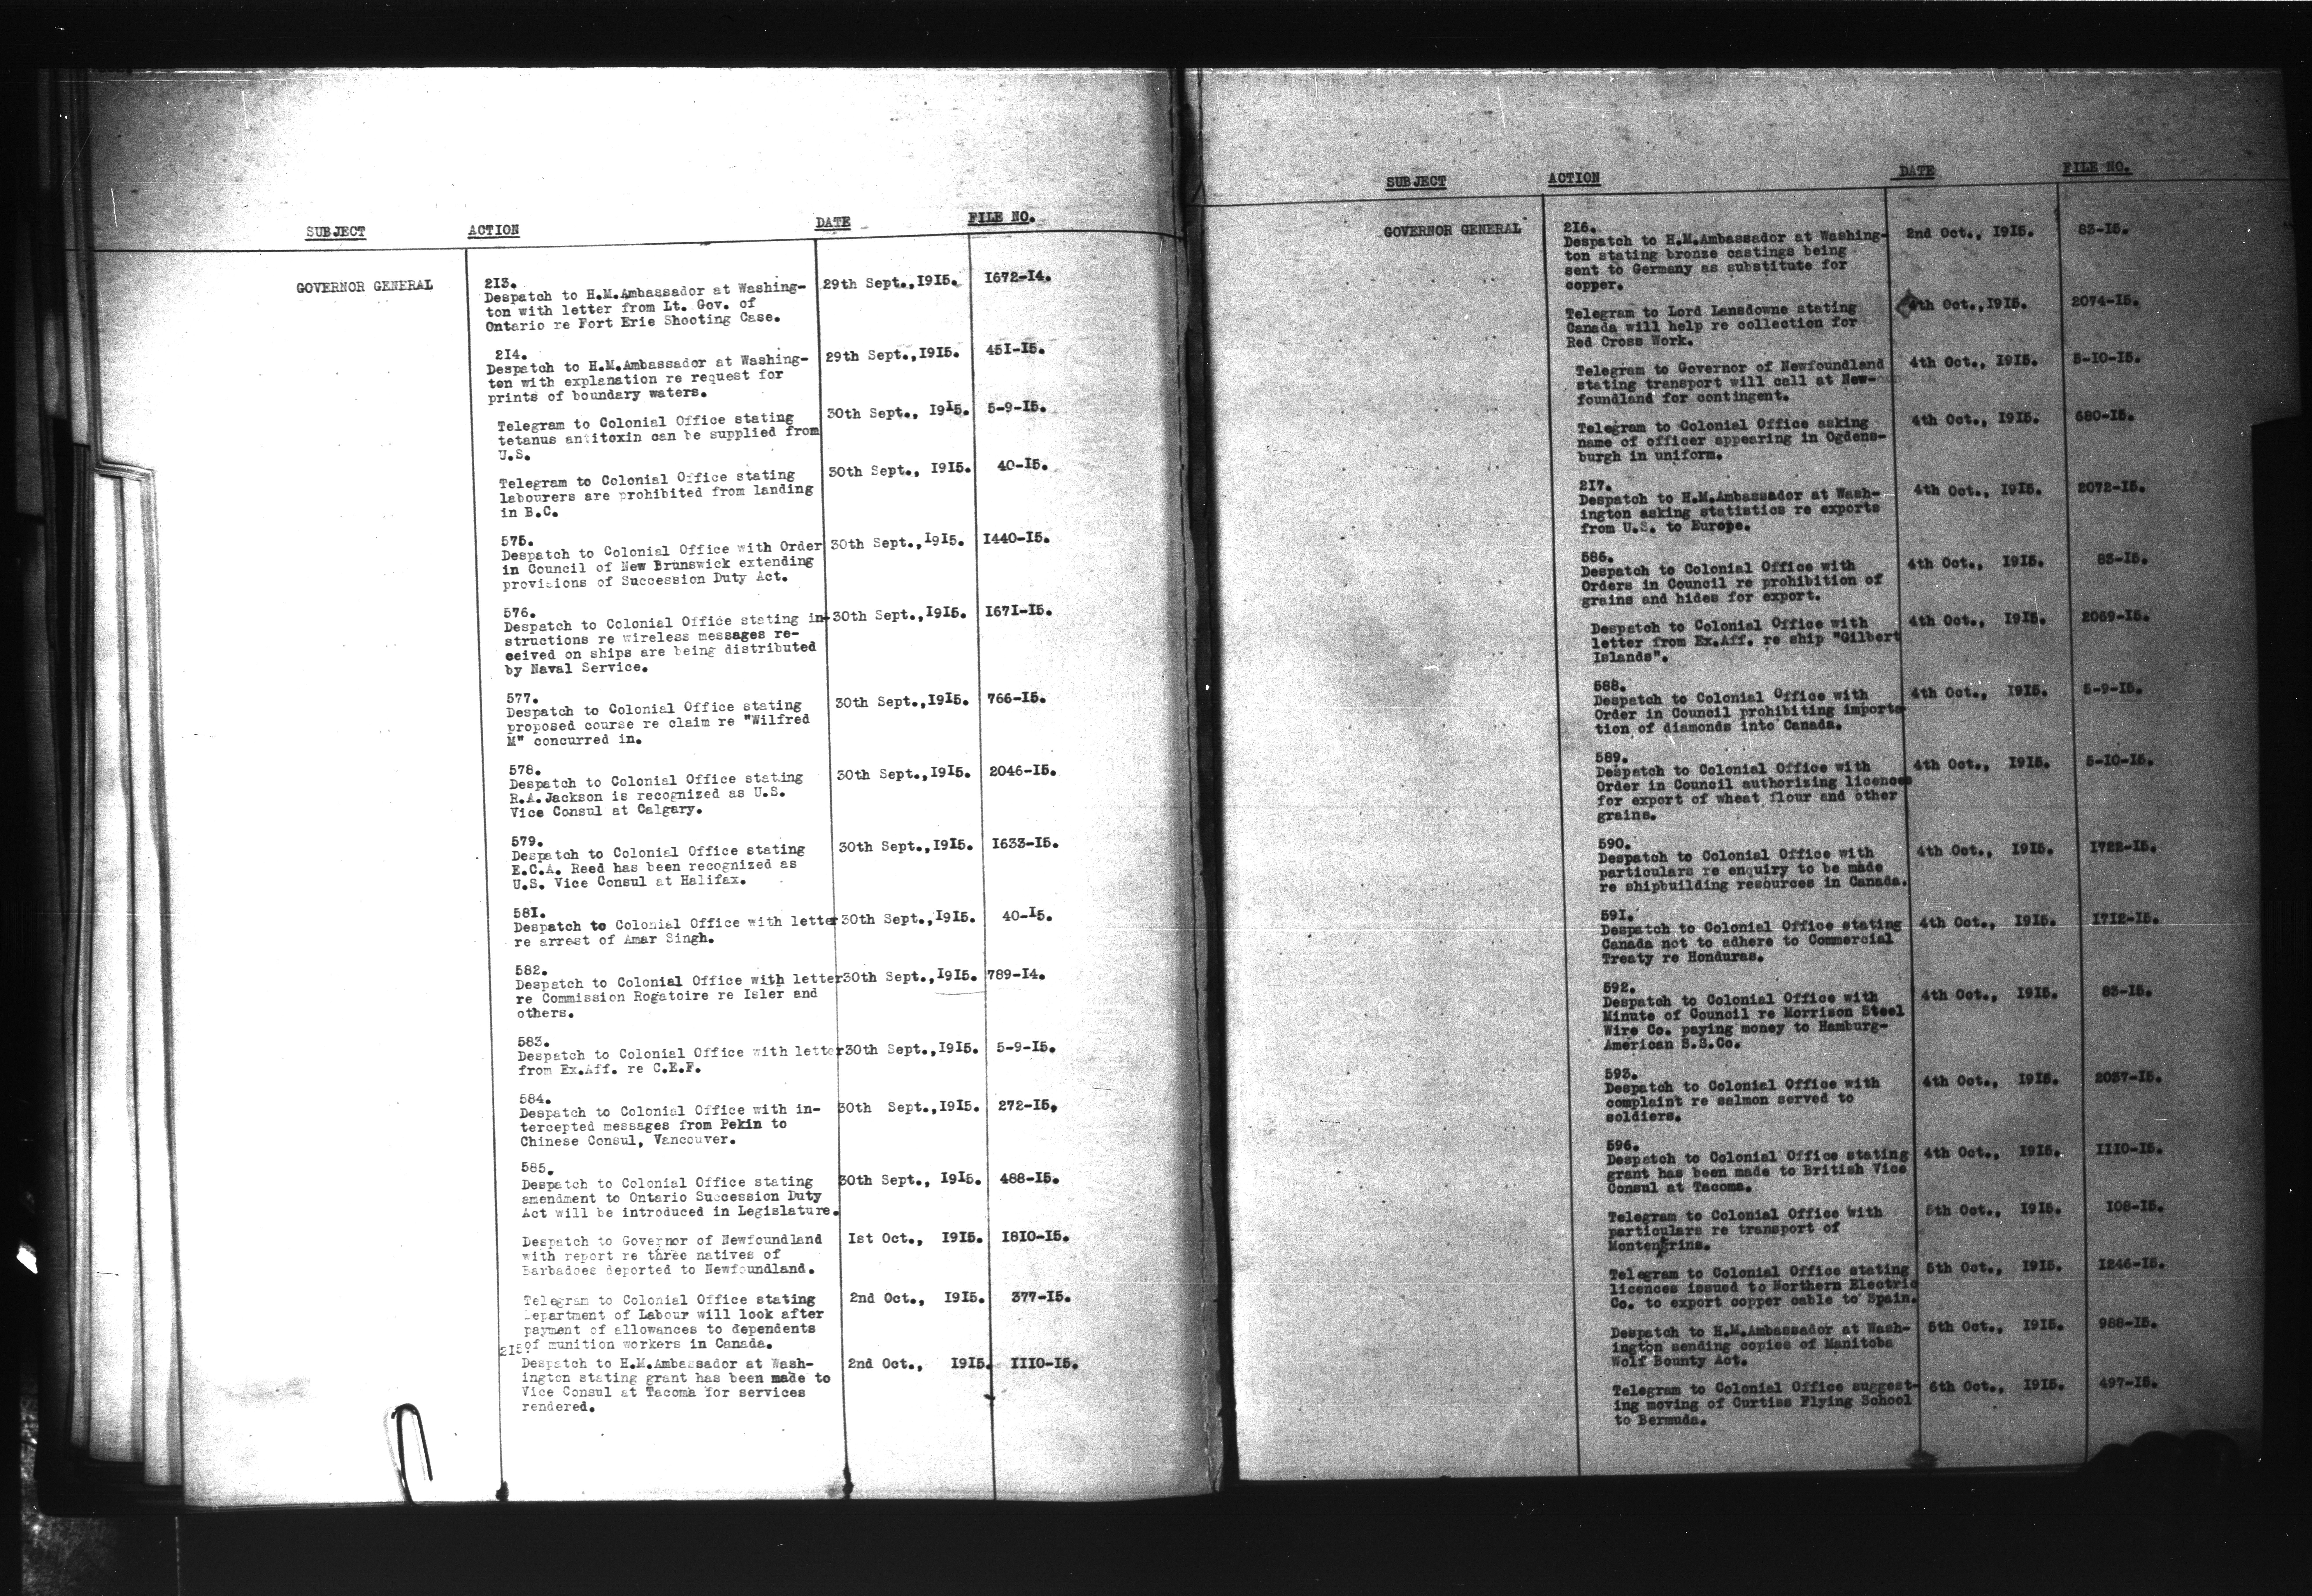 SUBJECT ACTION DATE FILE NO.
GOVERNOR GENERAL
213.
Despatch to H.M.Ambassador at Washing- 29th Sept.,1915. 1672-14.
ton with letter from Lt. Gov. of
Ontario re Fort Erie Shooting Case.
214.
Despatch to H.M.Ambassador at Washing- 29th Sept.,1915. 451-15.
ton with explanation re request for
prints of boundary waters.
Telegram to Colonial Office stating 30th Sept., 1915. 5-9-15.
tetanus antitoxin can be supplied from
U.S.
Telegram to Colonial Office stating 30th Sept., 1915. 40-15.
labourers are prohibited from landing
in B.C.
575.
Despatch to Colonial Office with Order 30th Sept.,1915. 1440-15.
in Council of New Brunswick extending
provisions of Succession Duty Act.
576.
Despatch to Colonial Office stating in- 30th Sept.,1915. 1671-15.
structions re wireless messages re-
ceived on ships are being distributed
by Naval Service.
577.
Despatch to Colonial Office stating 30th Sept.,1915. 766-15.
proposed course re claim re "Wilfred
M" concurred in.
578.
Despatch to Colonial Office stating 30th Sept.,1915. 2046-15.
R.A.Jackson is recognized as U.S.
Vice Consul at Calgary.
579.
Despatch to Colonial Office stating 30th Sept.,1915. 1633-15.
E.C.A. Reed has been recognized as
U.S. Vice Consul at Halifax.
581.
Despatch to Colonial Office with letter 30th Sept.,1915. 40-15.
re arrest of Amar Singh.
582.
Despatch to Colonial Office with letter 30th Sept.,1915. 789-14.
re Commission Rogatoire re Isler and
others.
583.
Despatch to Colonial Office with letter 30th Sept.,1915. 5-9-15.
from Ex.Aff. re C.E.F.
584.
Despatch to Colonial Office with in- 30th Sept.,1915. 272-15.
tercepted messages from Pekin to
Chinese Consul, Vancouver.
585.
Despatch to Colonial Office stating 30th Sept., 1915. 488-15.
amendment to Ontario Succession Duty
Act will be introduced in Legislature.
Despatch to Governor of Newfoundland 1st Oct., 1915. 1810-15.
with report re three natives of
Barbadoes deported to Newfoundland.
Telegram to Colonial Office stating 2nd Oct., 1915. 377-15.
Department of Labour will look after
payment of allowances to dependents
of munition workers in Canada.
215.
Despatch to H.M.Ambassador at Wash- 2nd Oct., 1915. 1110-15.
ington stating grant has been made to
Vice Consul at Tacoma for services
rendered.
SUBJECT ACTION DATE FILE NO.
GOVERNOR GENERAL
216.
Despatch to H.M.Ambassador at Washing- 2nd Oct., 1915. 83-15.
ton stating bronze castings being
sent to Germany as substitute for
copper.
Telegram to Lord Lansdowne stating 4th Oct.,1915. 2074-15.
Canada will help re collection for
Red Cross Work.
Telegram to Governor of Newfoundland 4th Oct., 1915. 5-10-15.
stating transport will call at New-
foundland for contingent.
Telegram to Colonial Office asking 4th Oct., 1915. 680-15.
name of officer appearing in Ogdens-
burgh in uniform.
217.
Despatch to H.M.Ambassador at Wash- 4th Oct., 1915. 2072-15.
ington asking statistics re exports
from U.S. to Europe.
586.
Despatch to Colonial Office with 4th Oct., 1915. 83-15.
Orders in Council re prohibition of
grains and hides for export.
Despatch to Colonial Office with 4th Oct., 1915. 2069-15.
letter from Ex.Aff. re ship "Gilbert
Islands".
588.
Despatch to Colonial Office with 4th Oct., 1915. 5-9-15.
Order in Council prohibiting importa
tion of diamonds into Canada.
589.
Despatch to Colonial Office with 4th Oct., 1915. 5-10-15.
Order in Council authorizing licences
for export of wheat flour and other
grains.
590.
Despatch to Colonial Office with 4th Oct., 1915. 1722-15.
particulars re enquiry to be made
re shipbuilding resources in Canada.
591.
Despatch to Colonial Office stating 4th Oct., 1915. 1712-15.
Canada not to adhere to Commercial
Treaty re Honduras.
592.
Despatch to Colonial Office with 4th Oct., 1915. 83-15.
Minute of Council re Morrison Steel
Wire Co. paying money to Hamburg-
American S.S.Co.
593.
Despatch to Colonial Office with 4th Oct., 1915. 2037-15.
complaint re salmon served to
soldiers.
596.
Despatch to Colonial Office stating 4th Oct., 1915. 1110-15.
grant has been made to British Vice
Consul at Tacoma.
Telegram to Colonial Office with 5th Oct., 1915. 108-15.
particulars re transport of
Montengrins.
Telegram to Colonial Office stating 5th Oct., 1915. 1246-15.
licences issued to Northern Electric
Co. to export copper cable to Spain.
Despatch to H.M.Ambassador at Wash- 5th Oct., 1915. 988-15.
ington sending copies of Manitoba
Wolf Bounty Act.
Telegram to Colonial Office suggest- 6th Oct., 1915. 497-15.
ing moving of Curtiss Flying School
to Bermuda.